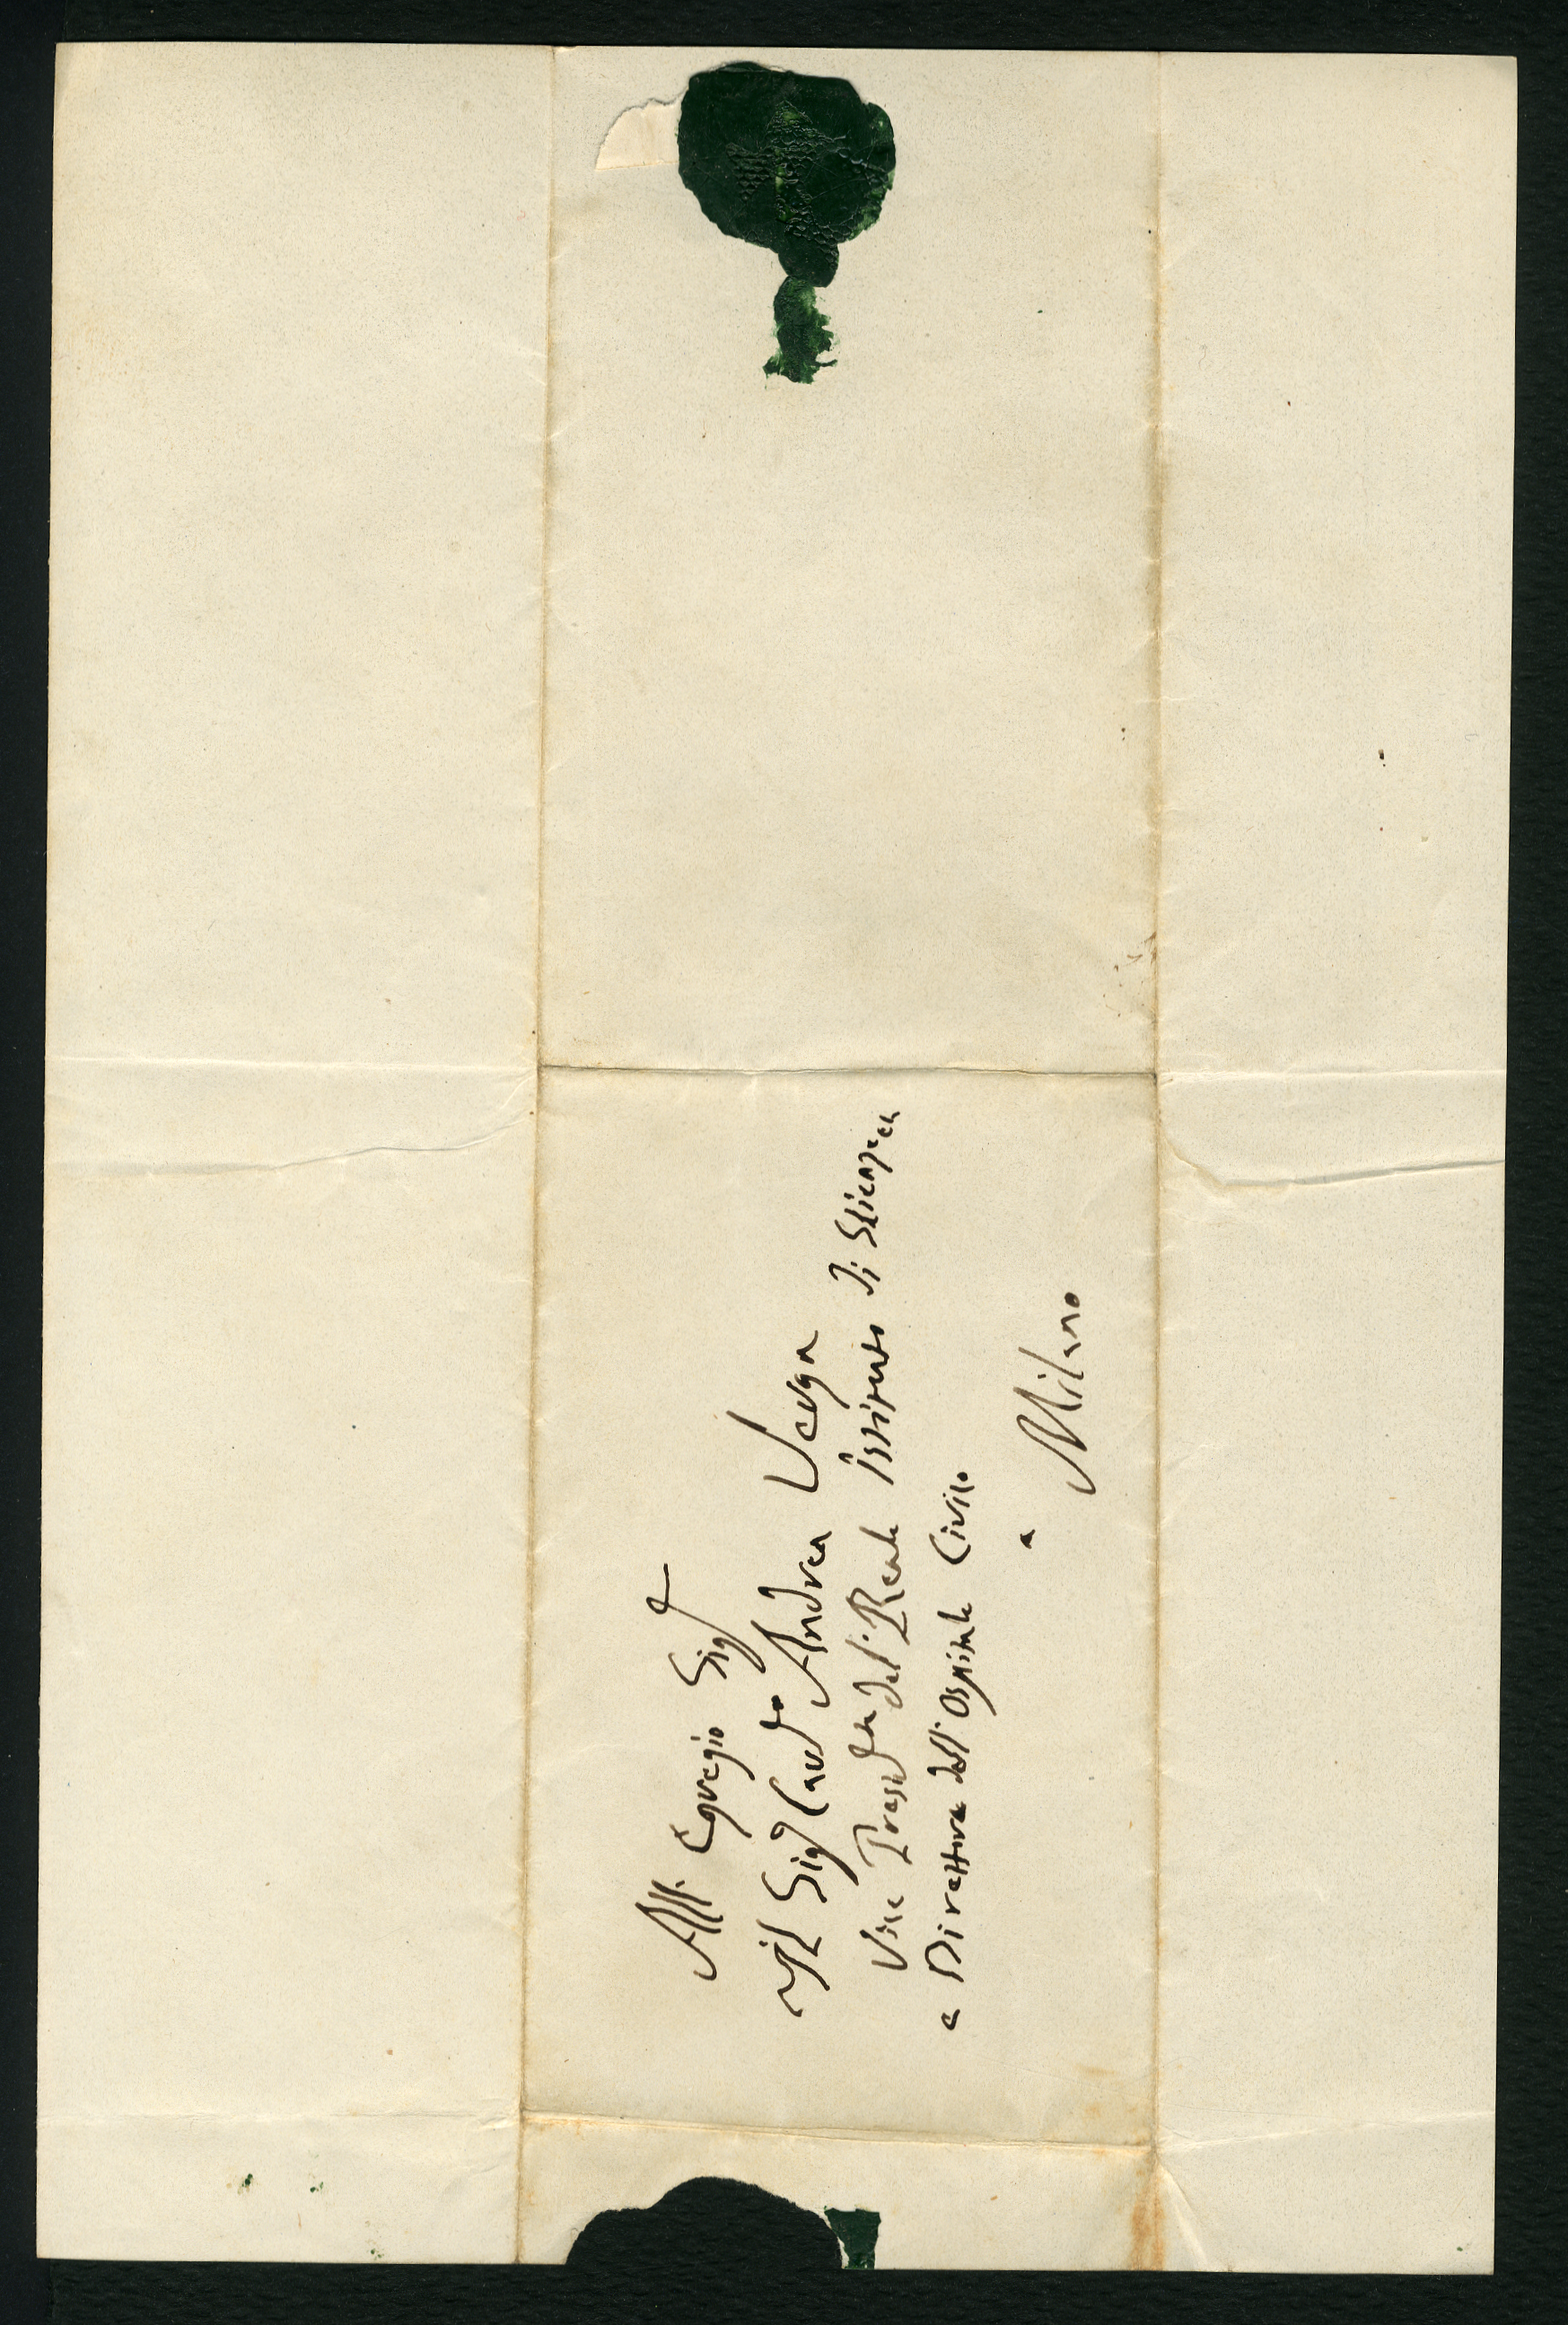 All' Egregio Sigr
Il Sigr Cav Dr Andrea Verga
Vice Presidte del Reale Istituto di Scienze ec
e Direttore dell'Ospitale Civile
a
Milano